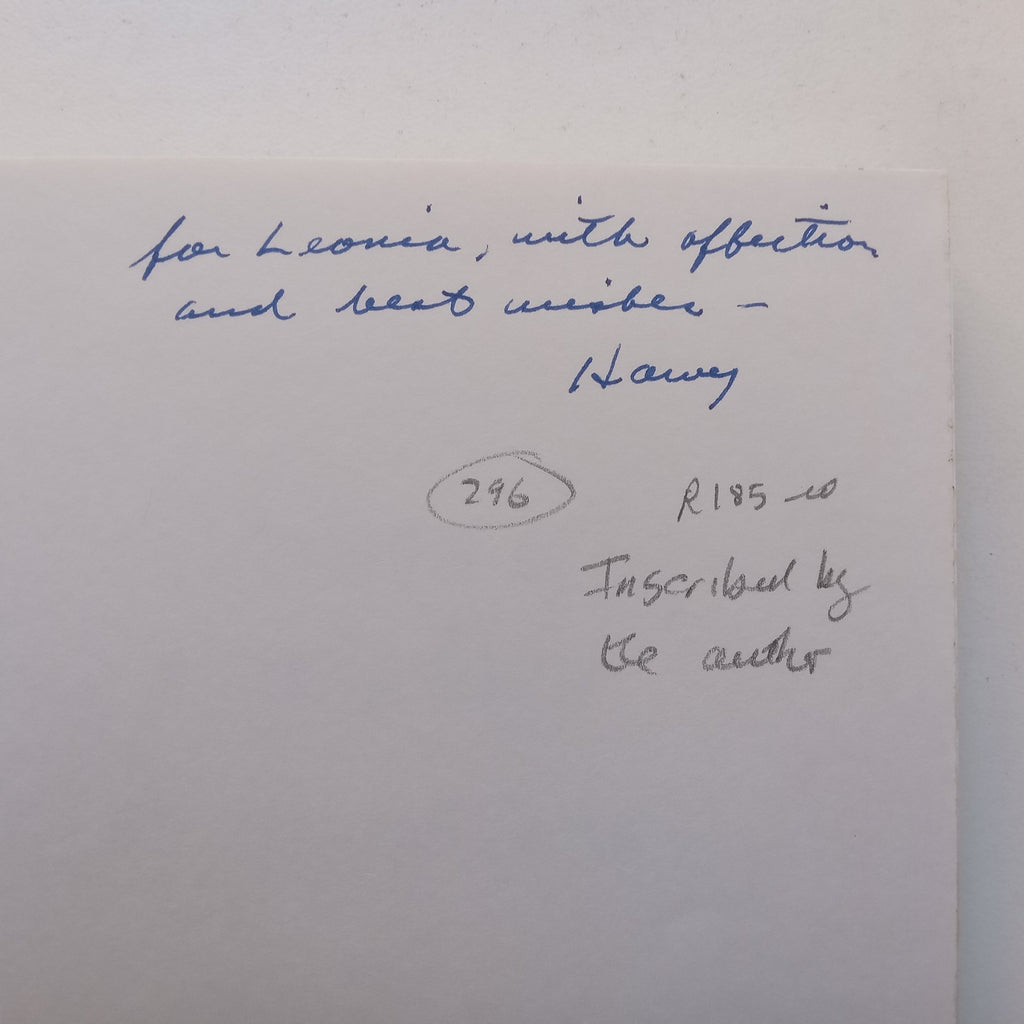 for Leonia, with affection
and best wishes –
Harvey
296
R185-00
Inscribed by
the author